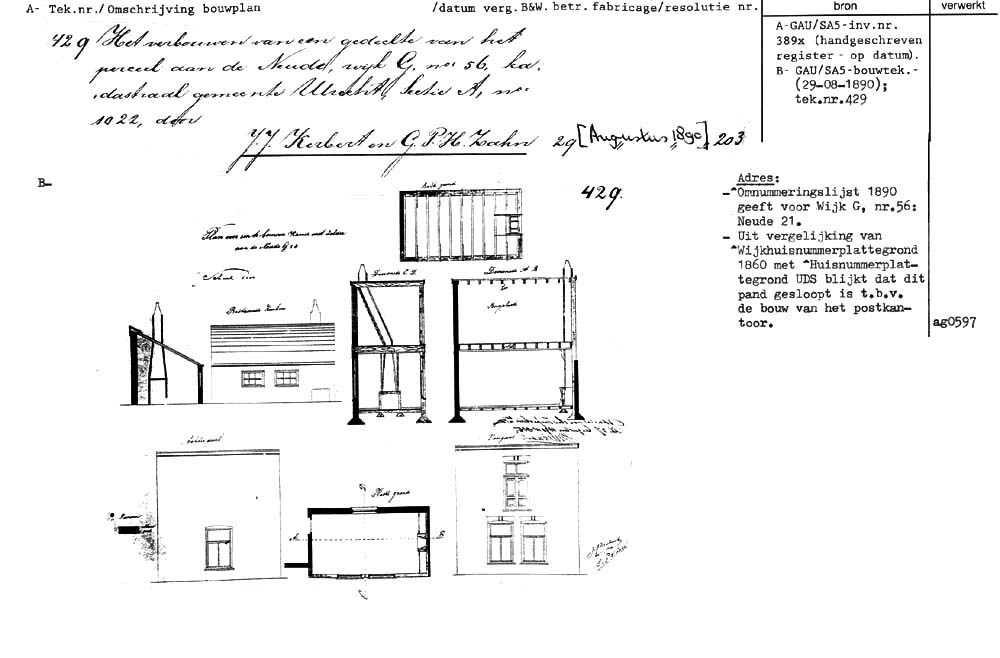 A- Tek.nr./Omschrijving bouwplan /datum verg.B&W. betr. fabricage/resolutie nr. bron verwerkt
429 Het verbouwen van een gedeelte van het
perceel aan de Neude, wijk G, no 56, ka-
dastraal gemeente Utrecht, Sectie A, no.
1022, door
J.J. Kerbert en G.P.H. Zahn 29 [Augustus 1890] 203
A-GAU/SA5-inv.nr.
389x (handgeschreven
register - op datum).
B- GAU/SA5-bouwtek.-
(29-08-1890);
tek.nr.429
B-
429.
Adres:
-^Omnummeringslijst 1890
geeft voor Wijk G, nr.56:
Neude 21.
- Uit vergelijking van
^Wijkhuisnummerplattegrond
1860 met ^Huisnummerplat-
tegrond UDS blijkt dat dit
pand gesloopt is t.b.v.
de bouw van het postkan-
toor.
ag0597
Plan voor een te bouwen
aan de Neude G 56
Doorsnede C D
Doorsnede A B
Platte grond
A
B